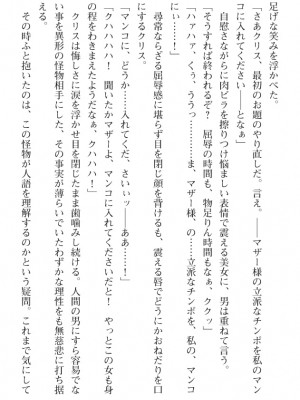 足げな笑みを浮かべた。
「さあクリス、最初のお題のやり直しだ。言え。――マザー様の立派なチンポを私のマン
コに入れてください――となぁ」
自慰さながらに肉ビラを擦りつけ悩ましい表情で震える美女に、男は重ねて言う。
「そうすれば終われるぞ？　屈辱の時間も、物足りん時間もなぁ、ククッ」
「ハァハァ、くぅ、ううっ……ま、マザー様、の……立派なチンポを、私の、マンコ
にぃ……！」
尋常ならざる屈辱感に堪らず目を閉じ顔を背けるも、震える唇でどうにかおねだりを口
にするクリス。
「マンコに、どうか……入れてくだ、さいぃッ――ああ……！」
「クハハハハ！　聞いたかマザーよ、マンコに入れてくださいだと！　やっとこの女も身
の程をわきまえたようだなぁ、クハハハ！」
クリスは悔しさに涙を浮かせ目を閉じたまま歯噛みし続ける。人間の男にすら容易でな
い事を異形の怪物相手にした、その事実が薄らいでいたわずかな理性をも無慈悲に打ち据
える。
その時ふと抱いたのは、この怪物が人語を理解するのかという疑問。これまで気にして